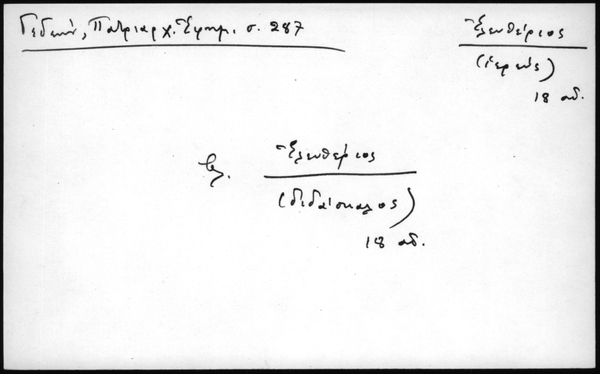 Γεδεών, Πατριαρχ. Ἐφημ. σ. 287
Ἐλευθέριος
(ἱερεύς)
18 αἰ.
βλ. Ἐλευθέριος
(διδάσκαλος)
18 αἰ.